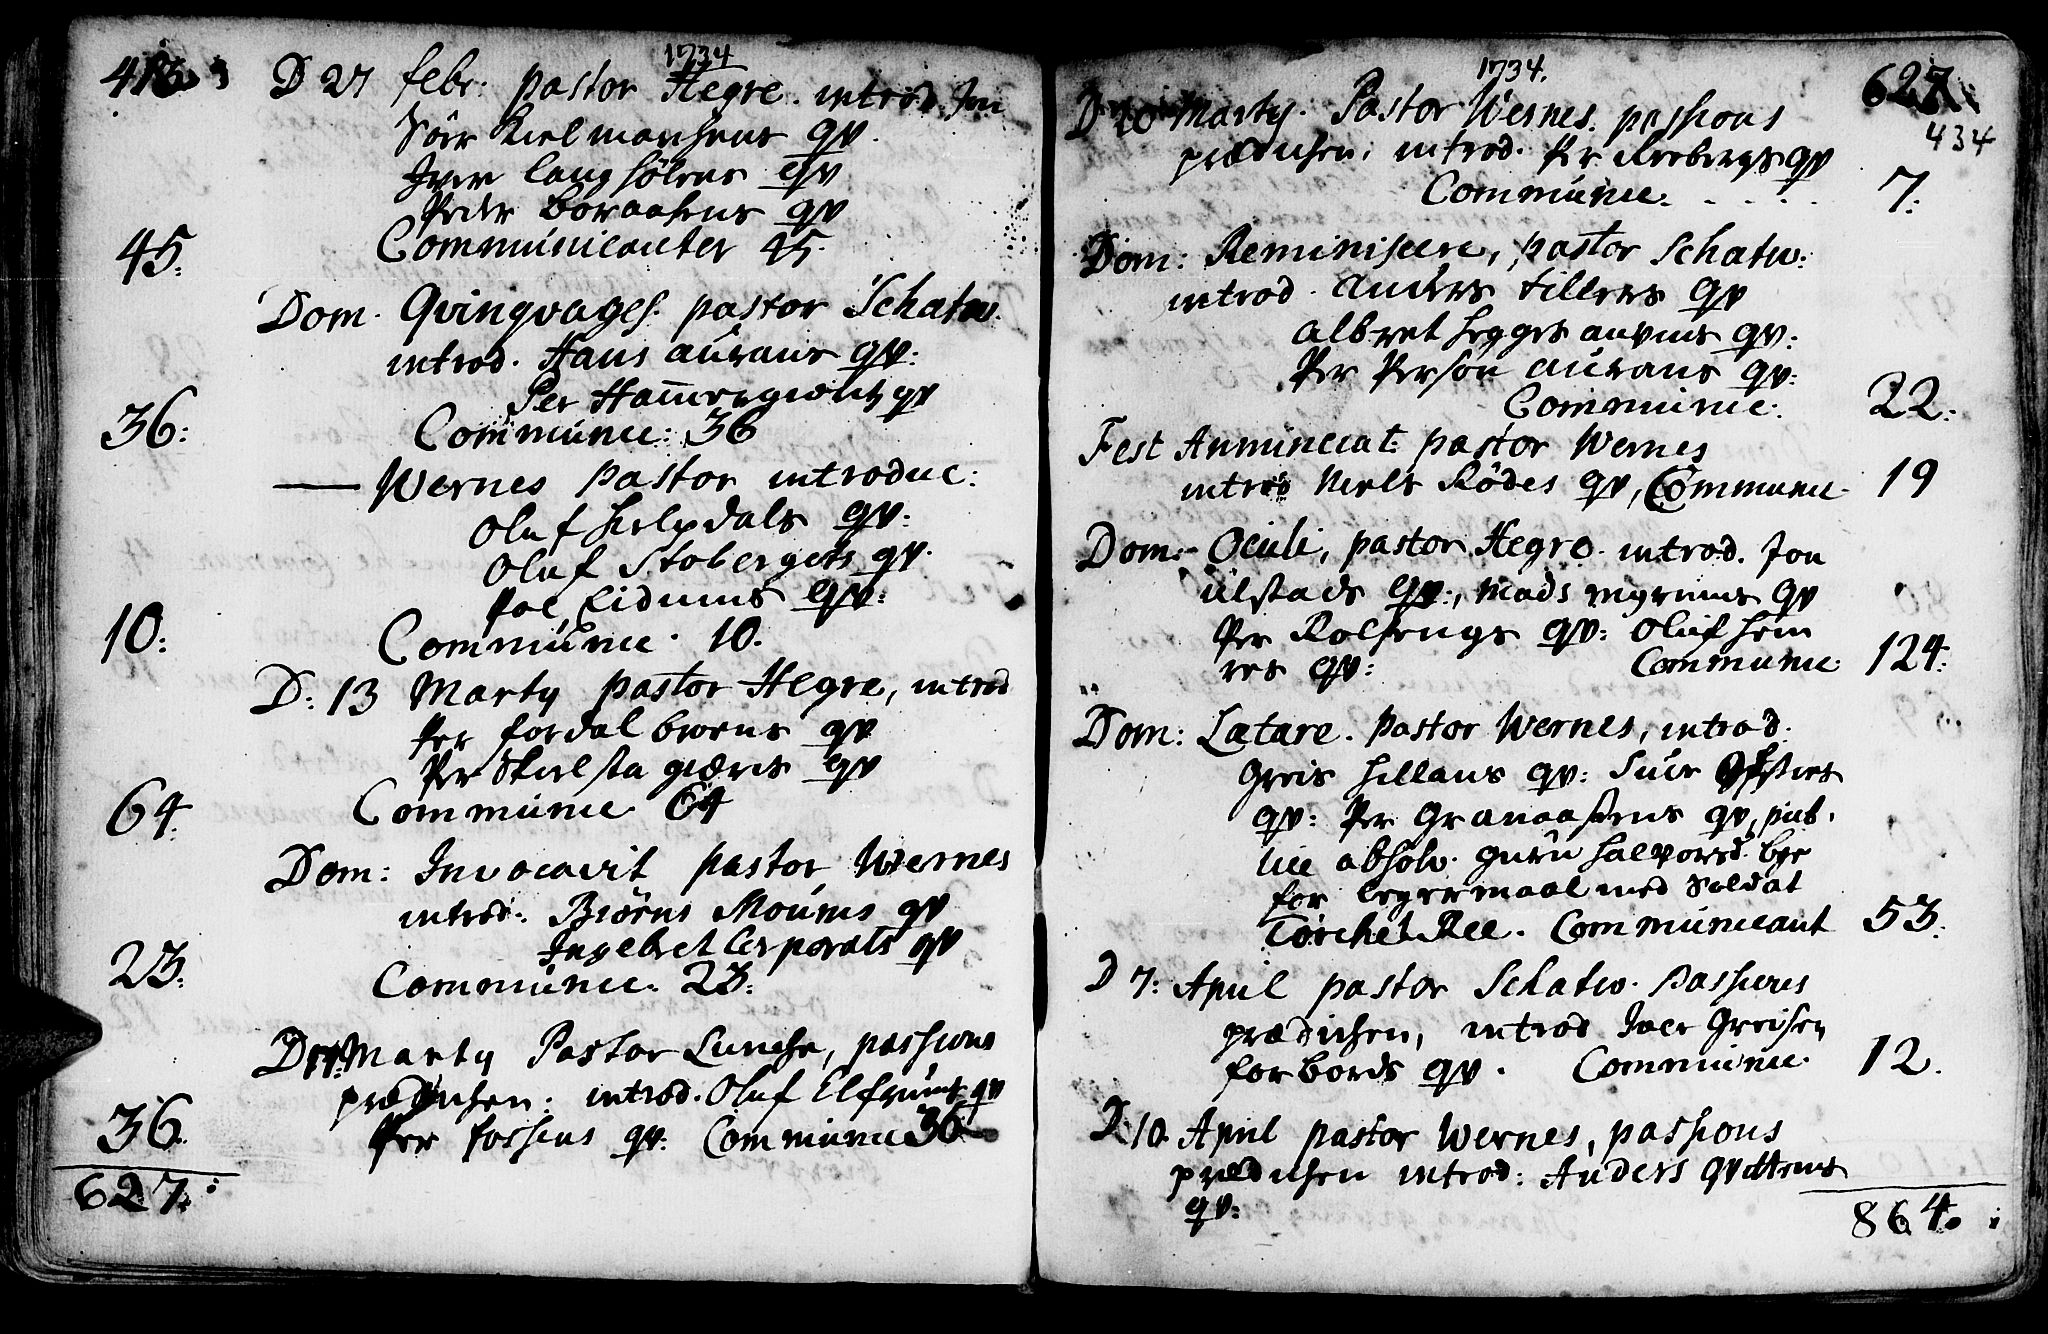 1734
D 27 febr. pastor Hegre. introd. Jon
Sörr Kielmandsens qv.
Iver langhölens qv
Peder Boraasens qv
45: Communicanter 45.
Dom. Qvinqvages. pastor Schatv.
introd. Hans aurans qv:
Per
36: Communic: 36
— Wernes Pastor introduc:
Oluf helgdals qv:
Oluf Stobergets qv.
Pol Eidums qv:
10: Communic. 10.
D: 13 Marty pastor Hegre, introd
Per fordal broens qv
Per Skielsta giærets qv
64: Communic 64
Dom: Invocavit pastor Wernes
introd: Biörns Moums qv
Ingebret Corporals qv
23: Communic. 23:
Marty Pastor Luncke, passions
prædichen: introd. Oluf qv
36. Per fossens qv: Communic 36
627:
1734.
627
434
Marty. Pastor Wernes. passions
prædichen: introd. Per qv
Communic. . . . . 7:
Dom: Reminiscere, pastor Schatv:
introd. Anders tillers qv
Albret qv:
Per Person aurans qv:
Communic: 22:
Fest Annunciat pastor Wernes
introd Niels Rödes qv, Communic 19
Dom: Oculi, pastor Hegre. introd. Jon
ulstads qv:, mads qv
Per Rolsengs qv: Oluf hem
res qv: Communic 124:
Dom: Lætare. Pastor Wernes, introd.
Greis hillans qv: Siur
qv: Per Granaasens qv, pub.
lice absolv. Guru halvorsd.
for leyermaal med Soldat
Communicant 53:
D 7: April pastor Schatv. Passions
prædichen, introd Iver Greisen
forbords qv. Communic. 12.
D. 10. April pastor Wernes, passions
prædichen introd: Anders
qv:
864.